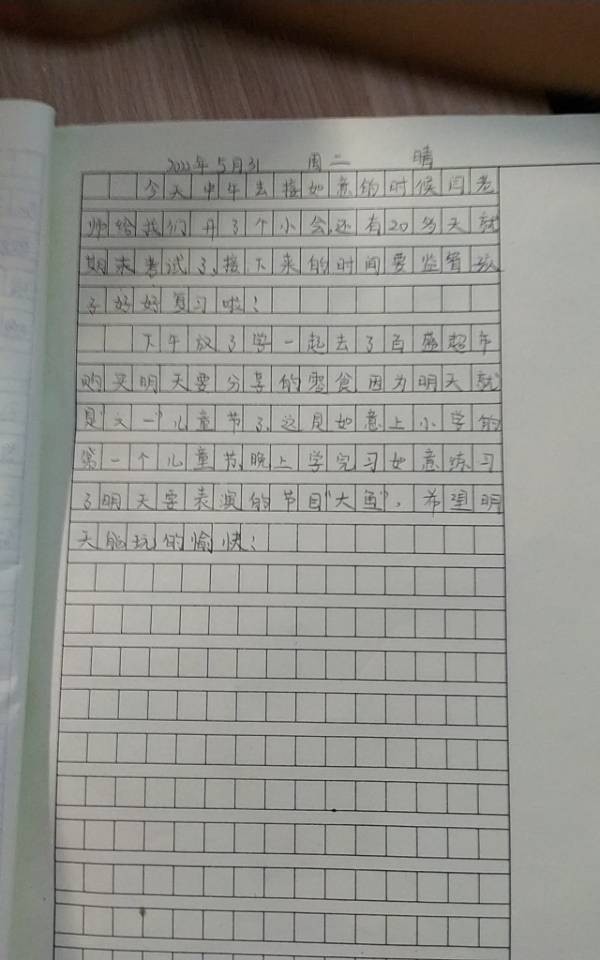 2022年5月31 周二 晴
今天中午去接如意的时候闫老
师给我们开了个小会,还有20多天就
期末考试了,接下来的时间要监督孩
子好好复习啦!
下午放了学一起去了百盛超市
购买明天要分享的零食因为明天就
是"六一"儿童节了,这是如意上小学的
第一个儿童节,晚上学完习如意练习
了明天要表演的节目"大鱼",希望明
天能玩的愉快!